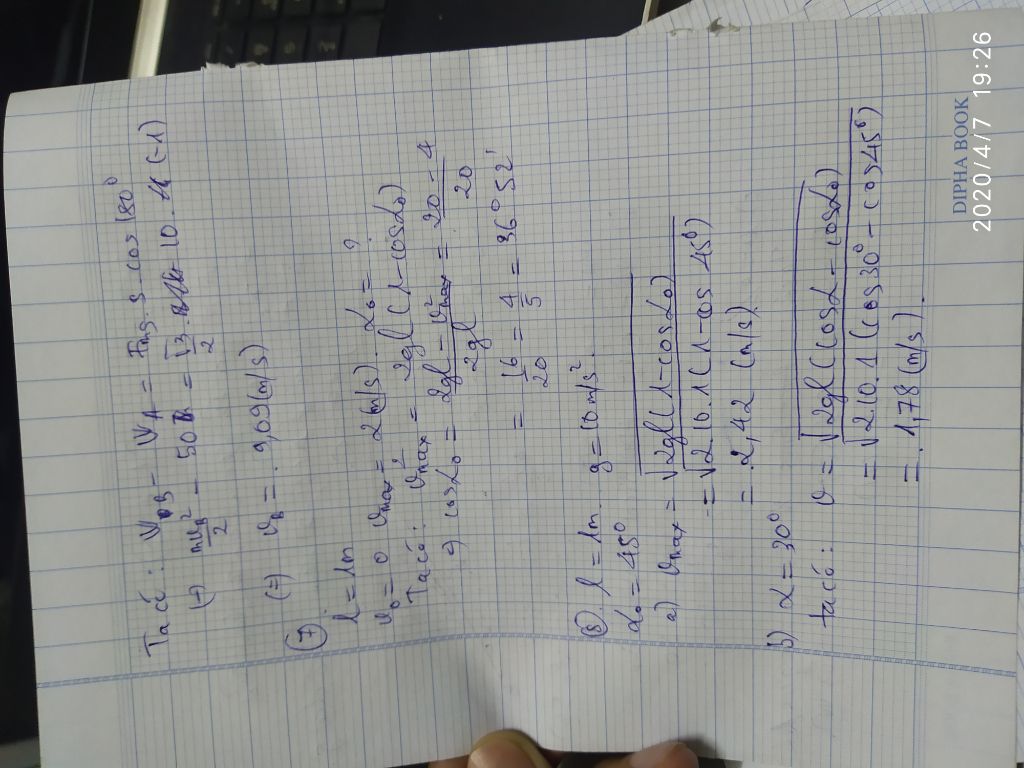 Ta có: W_B - W_A = F_ms . s . cos 180°
(=) mv_B²/2 - 50 = √3/2 . 10 . (-1)
(=) v_B = 9,09 (m/s)
⑦
l = 1m
v₀ = 0 v_max = 2 (m/s). α₀ = ?
Ta có: v²_max = 2gl (1 - cosα₀)
=) cosα₀ = (2gl - v²_max)/(2gl) = (20 - 4)/20
= 16/20 = 4/5 = 36°52'
⑧ l = 1m. g = 10 m/s².
α₀ = 45°
a) v_max = √(2gl(1 - cosα₀))
= √(2.10.1(1 - cos 45°))
= 2,42 (m/s)
b) α = 30°
ta có: v = √(2gl(cosα - cosα₀))
= √(2.10.1 (cos30° - cos45°))
= 1,78 (m/s).
DIPHA BOOK
2020/4/7 19:26